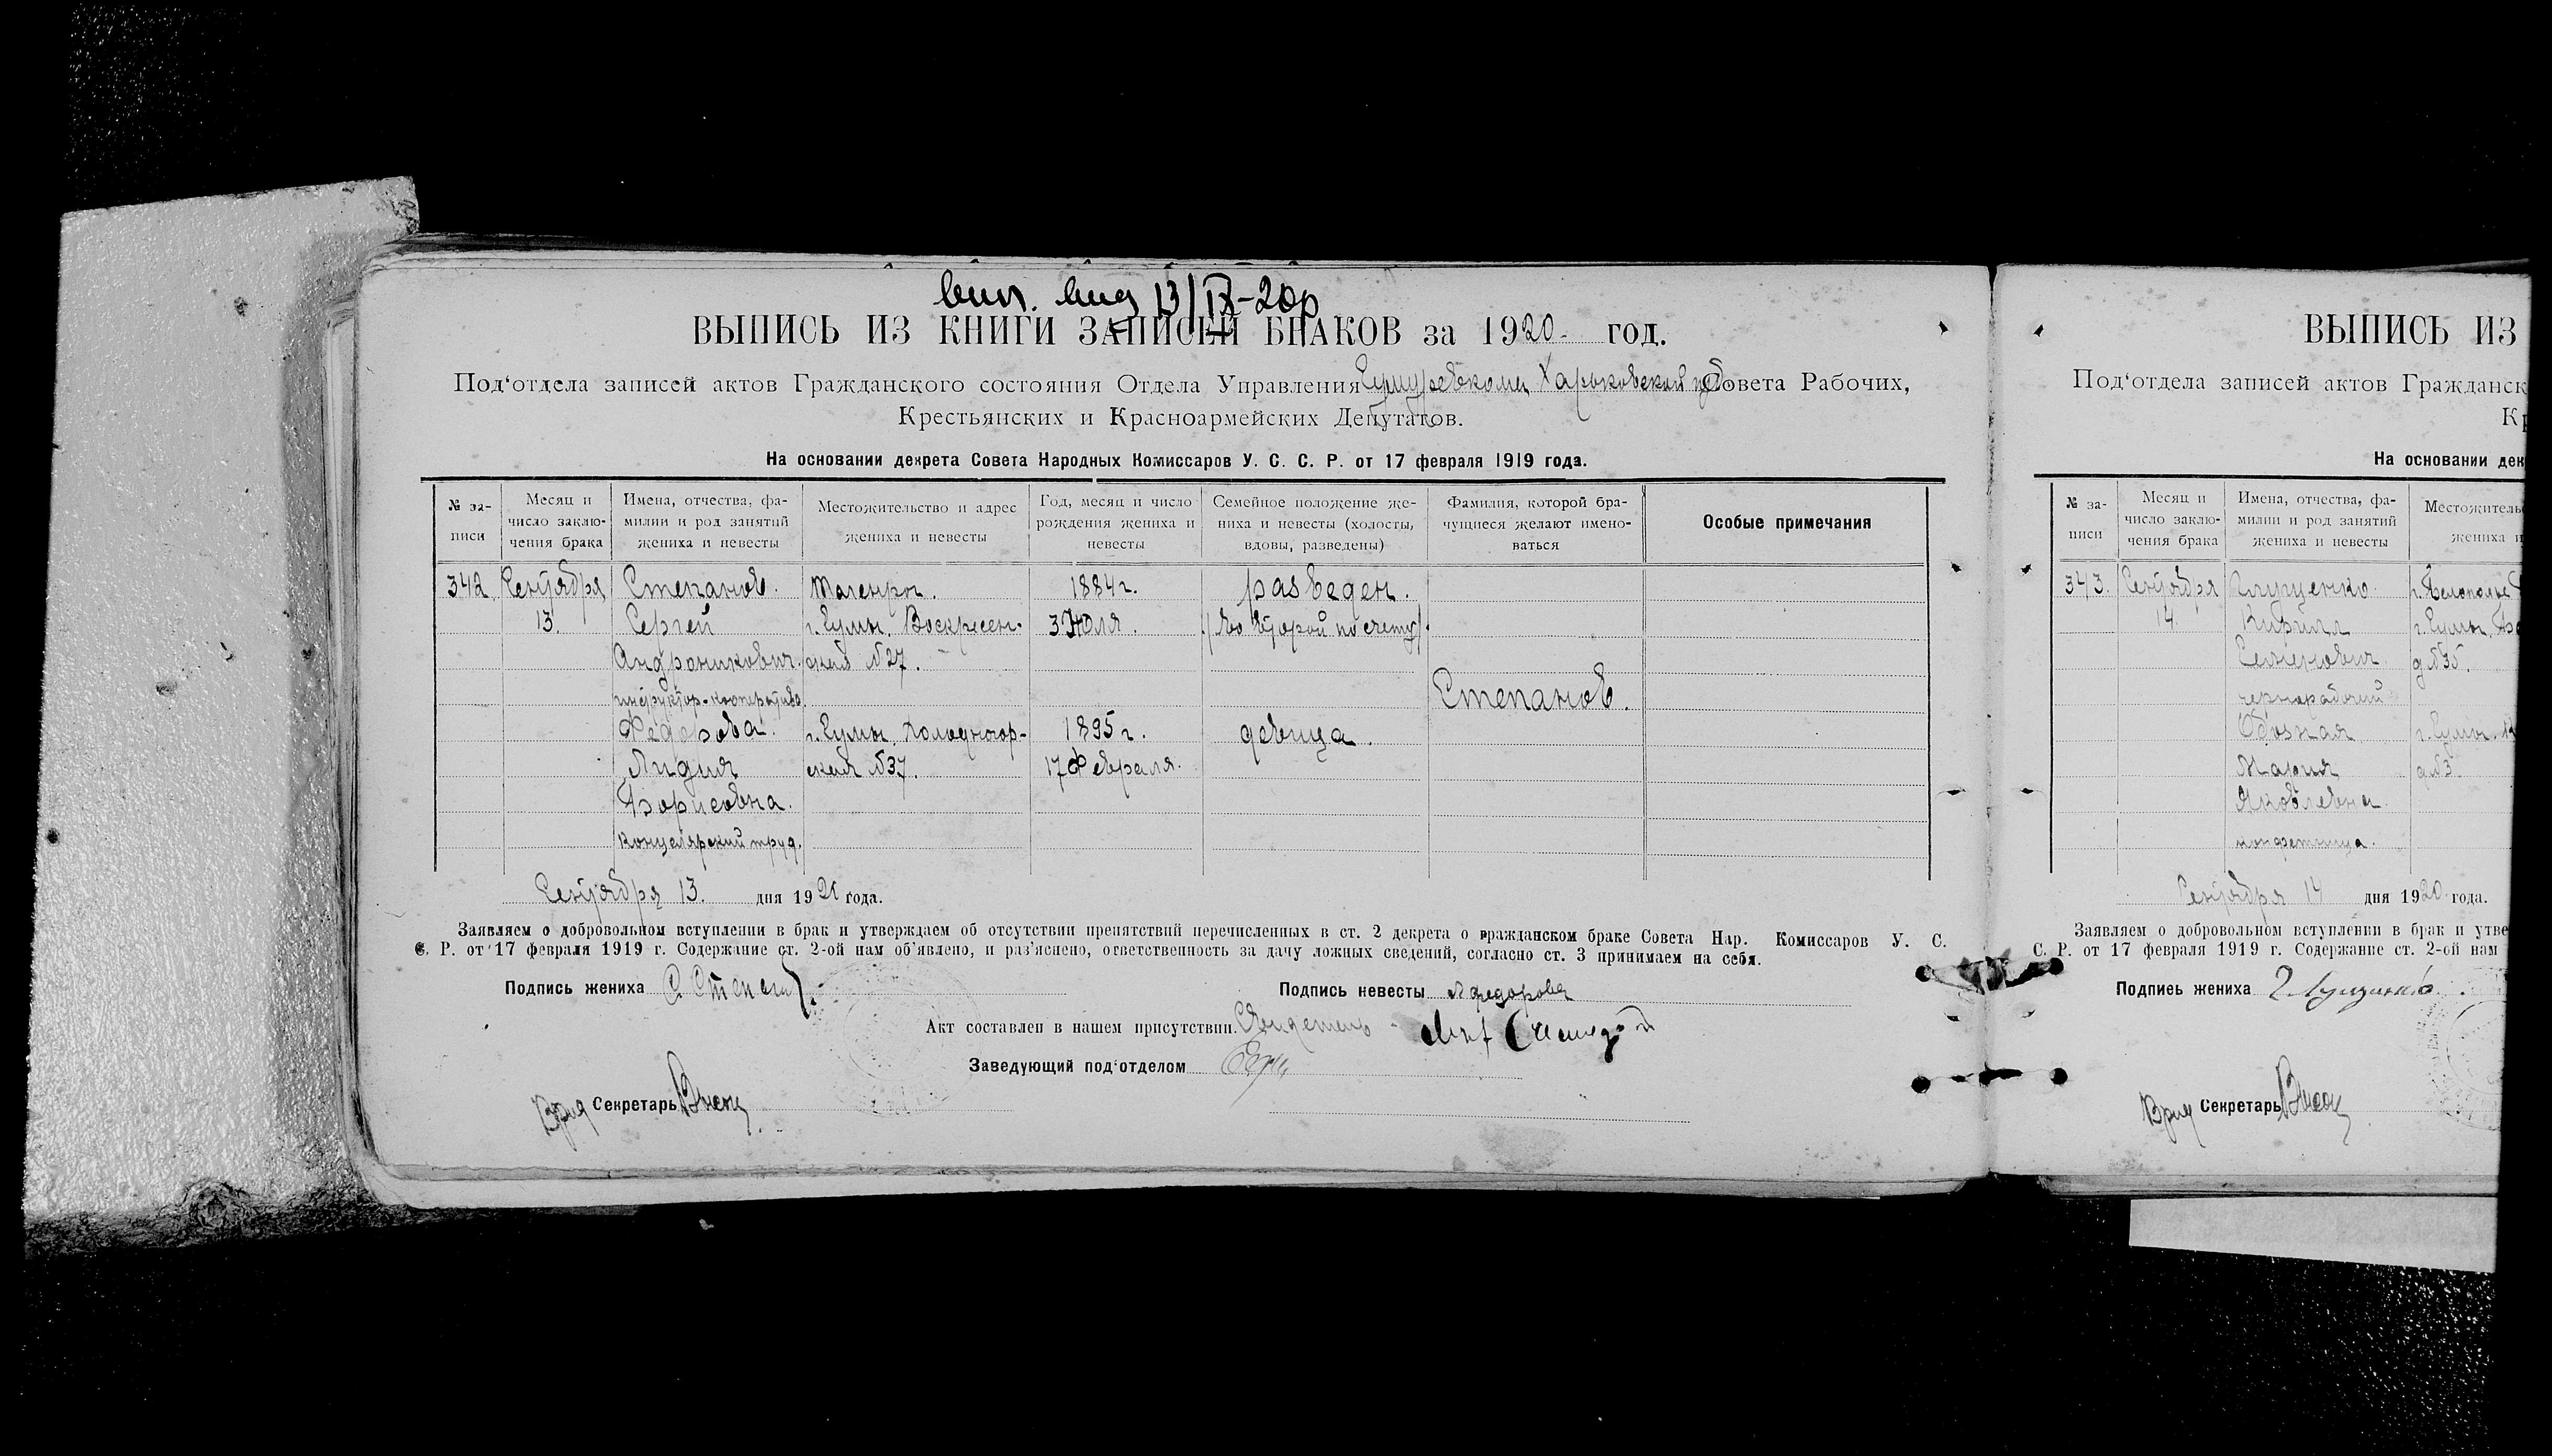 вид 13/IX-20р
ВЫПИСЬ ИЗ КНИГИ ЗАПИСЕЙ БРАКОВ за 1920 год.
Под‘отдела записей актов Гражданского состояния Отдела Управления Сумуревкома Харьковской губ Совета Рабочих,
Крестьянских и Красноармейских Депутатов.
На основании декрета Совета Народных Комиссаров У. С. С. Р. от 17 февраля 1919 года.
№ за-
писи
Месяц и
число заклю-
чения брака
Имена, отчества, фа-
милии и род занятий
жениха и невесты
Местожительство и адрес
жениха и невесты
Год, месяц и число
рождения жениха и
невесты
Семейное положение же-
ниха и невесты (холосты,
вдовы, разведены)
Фамилия, которой бра-
чущиеся желают имено-
ваться
Особые примечания
342 Сентября Степанов. Таганрог. 1884 г. разведен.
13. Сергей г. Сумы. Воскресен- 3 Июля. /во второй по счету/.
Андроникович. ская №27.
инструктор-кооператив. Степанов.
Федорова. г. Сумы. Холодногор- 1895 г. девица.
Лидия ская №37. 17 Февраля.
Борисовна.
Канцелярский труд.
Сентября 13. дня 1920 года.
Заявляем о добровольном вступлении в брак и утверждаем об отсутствии препятствий перечисленных в ст. 2 декрета о гражданском браке Совета Нар. Комиссаров У. С.
С. Р. от 17 февраля 1919 г. Содержание ст. 2-ой нам об‘явлено, и раз‘яснено, ответственность за дачу ложных сведений, согласно ст. 3 принимаем на себя.
Подпись жениха С. Степанов Подпись невесты Л Федорова
Акт составлен в нашем присутствии. Свидетель -
Заведующий под‘отделом
Врид Секретарь
ВЫПИСЬ ИЗ
Под‘отдела записей актов Гражданск
Кр
На основании дек
№ за-
писи
Месяц и
число заклю-
чения брака
Имена, отчества, фа-
милии и род занятий
жениха и невесты
Местожительс
жениха и
343. Сентября Глущенко г. Белополье
14. Кирилл г. Сумы.
Семенович д. №35.
чернорабочий
Обозная г. Сумы.
Мария д. №3
Яковлевна
конфетница.
Сентября 14 дня 1920 года.
Заявляем о добровольном вступлении в брак и утве
С. Р. от 17 февраля 1919 г. Содержание ст. 2-ой нам
Подпись жениха Глущенко
Врид Секретарь